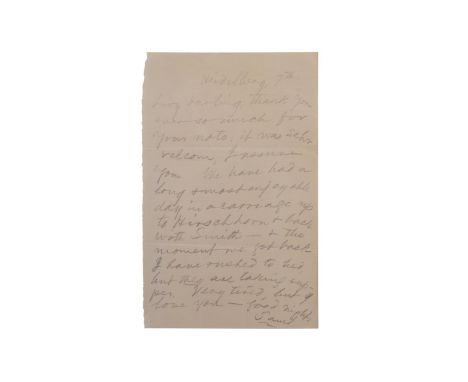 Heidelberg, 7th
Livy darling, thank you
ever so much for
your note; it was sehr
welcom, I assure
you. We have had a
long & most enjoyable
day in a carriage up
to Hirschhorn & back
with Smith — & the
moment we got back
I have rushed to bed
but they are taking sup-
per. Very tired, but I
love you — good night.
Saml